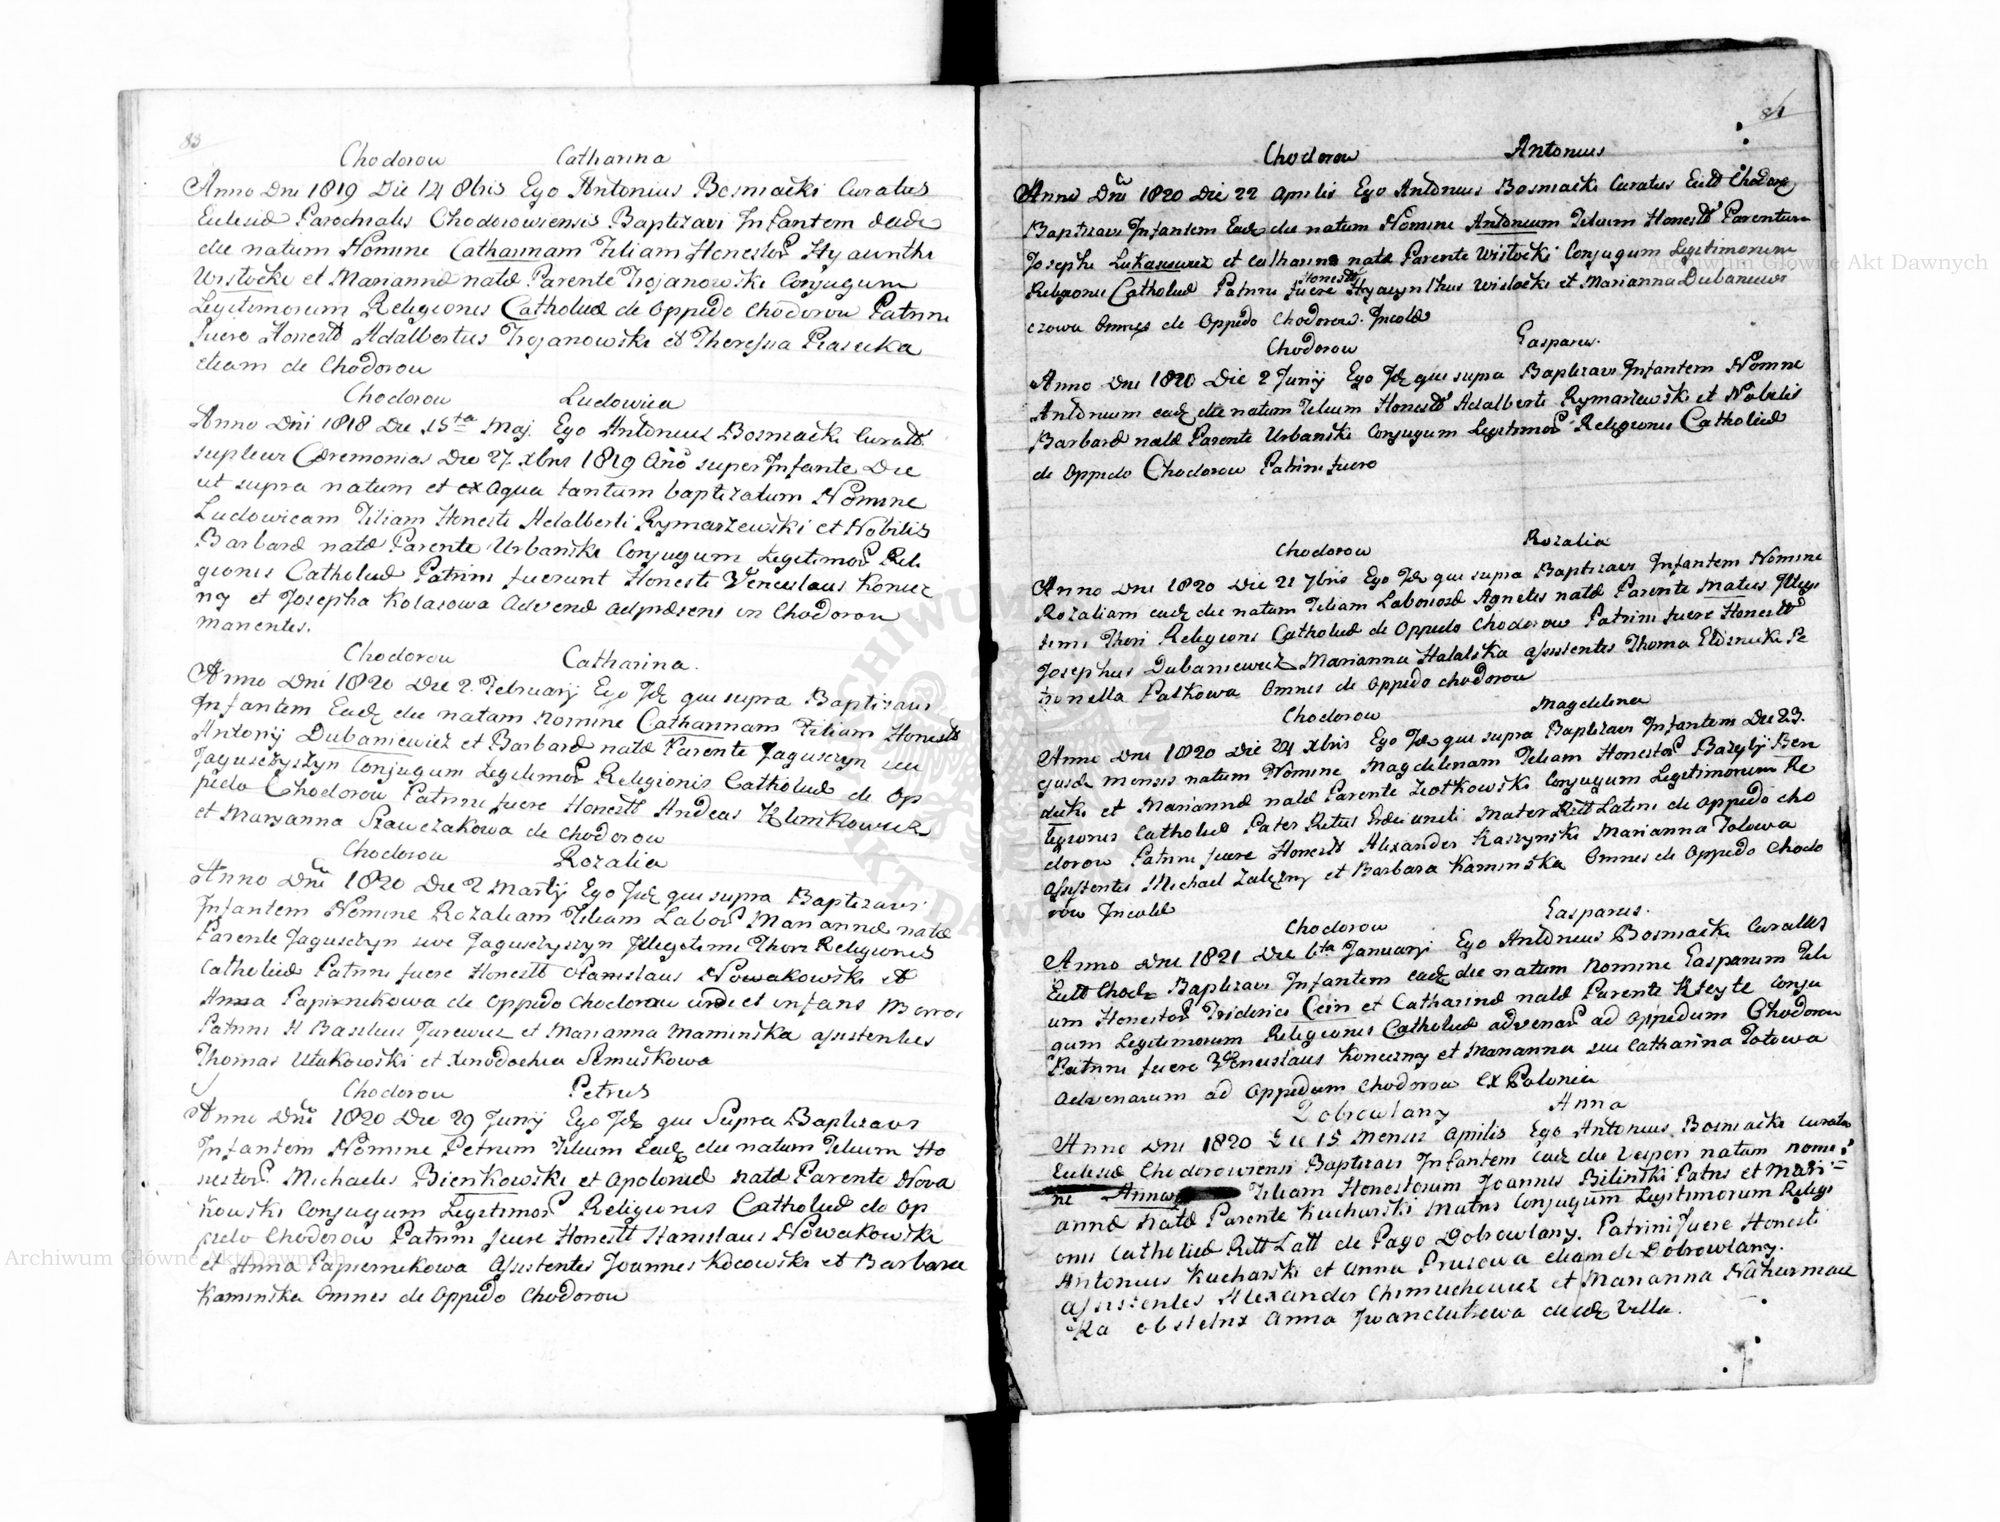 83
Chodorow Catharina
Anno Dni 1819 Die 14 8bris Ego Antonius Bosniacki Curatus
Eclesiæ Parochialis Chodoroviensis Baptizavi Infantem eadem
die natum Nomine Catharinam Filiam Honestor Hyacinthi
Wistocki et Mariannæ natæ Parente Trojanowski Conjugum
Legitimorum Religionis Catholicæ de Oppido Chodorow Patrini
fuere Honesti Adalbertus Trojanowski et Theressia Piasecka
etiam de Chodorow
Chodorow Ludowica
Anno Dni 1818 Die 15ta Maj. Ego Antonius Bosniacki Curatus
suplevi Cæremonias Die 27 Xbris 1819 Ano super Infante Die
ut supra natum et ex aqua tantum baptizatum Nomine
Ludowicam Filiam Honesti Adalberti Rymarzewski et Nobilis
Barbaræ natæ Parente Urbanski Conjugum Legitimor Reli
gionis Catholicæ Patrini fuerunt Honesti Venceslaus Koniecz
ny et Josepha Kolasowa Advenæ adpræsens in Chodorow
manentes.
Chodorow Catharina.
Anno Dni 1820 Die 2. Februarij Ego Id qui supra Baptizavi
Infantem Ead die natam nomine Catharinam Filiam Honesti
Antonij Dubaniewicz et Barbaræ natæ Parente Jaguszyn seu
Jaguszyszyn Conjugum Legitimor Religionis Catholicæ de Op
pido Chodorow Patrini fuere Honesti Andreas Klimkowicz
et Maryanna Szawczakowa de Chodorow
Chodorow Rozalia
Anno Dni 1820 Die 2 Martij Ego Id qui supra Baptizavi
Infantem Nomine Rozaliam Filiam Labor Mariannæ natæ
Parente Jaguszyn sive Jaguszyszyn Illegitimi Thori Religionis
Catholicæ Patrini fuere Honesti Stanislaus Nowakowski et
Anna Papirnikowa de Oppido Chodorow unde et infans
Patrini H Basilius Jurewicz et Marianna Maminska assistentes
Thomas Ulukowski et Xenodochia Semuskowa
Chodorow Petrus
Anno Dni 1820 Die 29 Junij Ego Id qui Supra Baptizavi
Infantem Nomine Petrum Filium Ead die natum Filium Ho
nestor Michaelis Bienkowski et Apoloniæ natæ Parente Nova
kowski Conjugum Legitimor Religionis Catholicæ de Op
pido Chodorow Patrini fuere Honesti Stanislaus Nowakowski
et Anna Papiernikowa Assistentes Joannes Kocowski et Barbara
Kaminska Omnes de Oppido Chodorow
84
Chodorow Antonius
Anno Dni 1820 Die 22 Aprilis Ego Antonius Bosniacki Curatus Eccl Chodor
Baptizavi Infantem Ead die natum Nomine Antonium Filium Honest Parentum
Josephi Lukasiewicz et Catharinæ natæ Parente Wistocki Conjugum Legitimorum
Religionis Catholicæ Patrini fuere Honesti Hyacynthus Wislocki et Marianna Dubaniewi
czowa Omnes de Oppido Chodorow. Incolæ
Chodorow Gasparus.
Anno Dni 1820 Die 2 Junij Ego Id qui supra Baptizavi Infantem Nomine
Antonium ead die natum Filium Honesti Adalberti Rymarzewski et Nobilis
Barbaræ natæ Parente Urbanski Conjugum Legitimor Religionis Catholicæ
de Oppido Chodorow Patrini fuere
Chodorow Rozalia
Anno Dni 1820 Die 21 7bris Ego Id qui supra Baptizavi Infantem Nomine
Rozaliam ead die natum Filiam Laboriosæ Agnetis natæ Parente Matus Illegi
timi Thori Religionis Catholicæ de Oppido Chodorow Patrini fuere Honesti
Josephus Dubaniewicz Marianna Halalska Assistentes Thoma Pe
tronella Palkowa Omnes de Oppido Chodorow
Chodorow Magdelena
Anno Dni 1820 Die 24 Xbris Ego Id qui supra Baptizavi Infantem Die 23.
ejusd mensis natum Nomine Magdelenam Filiam Honestor Bazylij Ben
ducki et Mariannæ natæ Parente Ziotkowski Conjugum Legitimorum Re
ligionis Catholicæ Pater Ritus Mater Ritt Latini de Oppido Cho
dorow Patrini fuere Honesti Alexander Kaszynski Marianna Tolowa
Assistentes Michael Zalezny et Barbara Kaminska Omnes de Oppido Chodo
row Incolæ
Chodorow Gasparus.
Anno Dni 1821 Die 6ta Januarij Ego Antonius Bosniacki Curatus
Eccl Chod Baptizavi Infantem ead die natum Nomine Gasparum Fili
um Honestor Friderici Cein et Catharinæ natæ Parente Kleyte Conju
gum Legitimorum Religionis Catholicæ advenar ad Oppidum Chodorow
Patrini fuere Venceslaus Konieczny et Marianna seu Catharina Totowa
Advenarum ad Oppidum Chodorow ex Polonia
Dobrowlany Anna
Anno Dni 1820 Die 15 Mensis Aprilis Ego Antonius Bosniacki Curatus
Eclesiæ Chodorowiensis Baptizavi Infantem ead die Vesperi natam nomi
ne Annam Filiam Honestorum Joannis Bilinski Patris et Mari=
annæ Natæ Parente Kucharski Matris Conjugum Legitimorum Religi
onis Catholicæ Ritt Latt de Pago Dobrowlany. Patrini fuere Honesti
Antonius Kucharski et Anna Prusowa etiam de Dobrowlany.
Assistentes Alexander Chimichewicz et Marianna Nahurniac
ka obstetrix Anna Iwanciutkowa de ead Villa.
Archiwum Główne Akt Dawnych
Archiwum Główne Akt Dawnych
ARCHIWUM AKT DAWNYCH